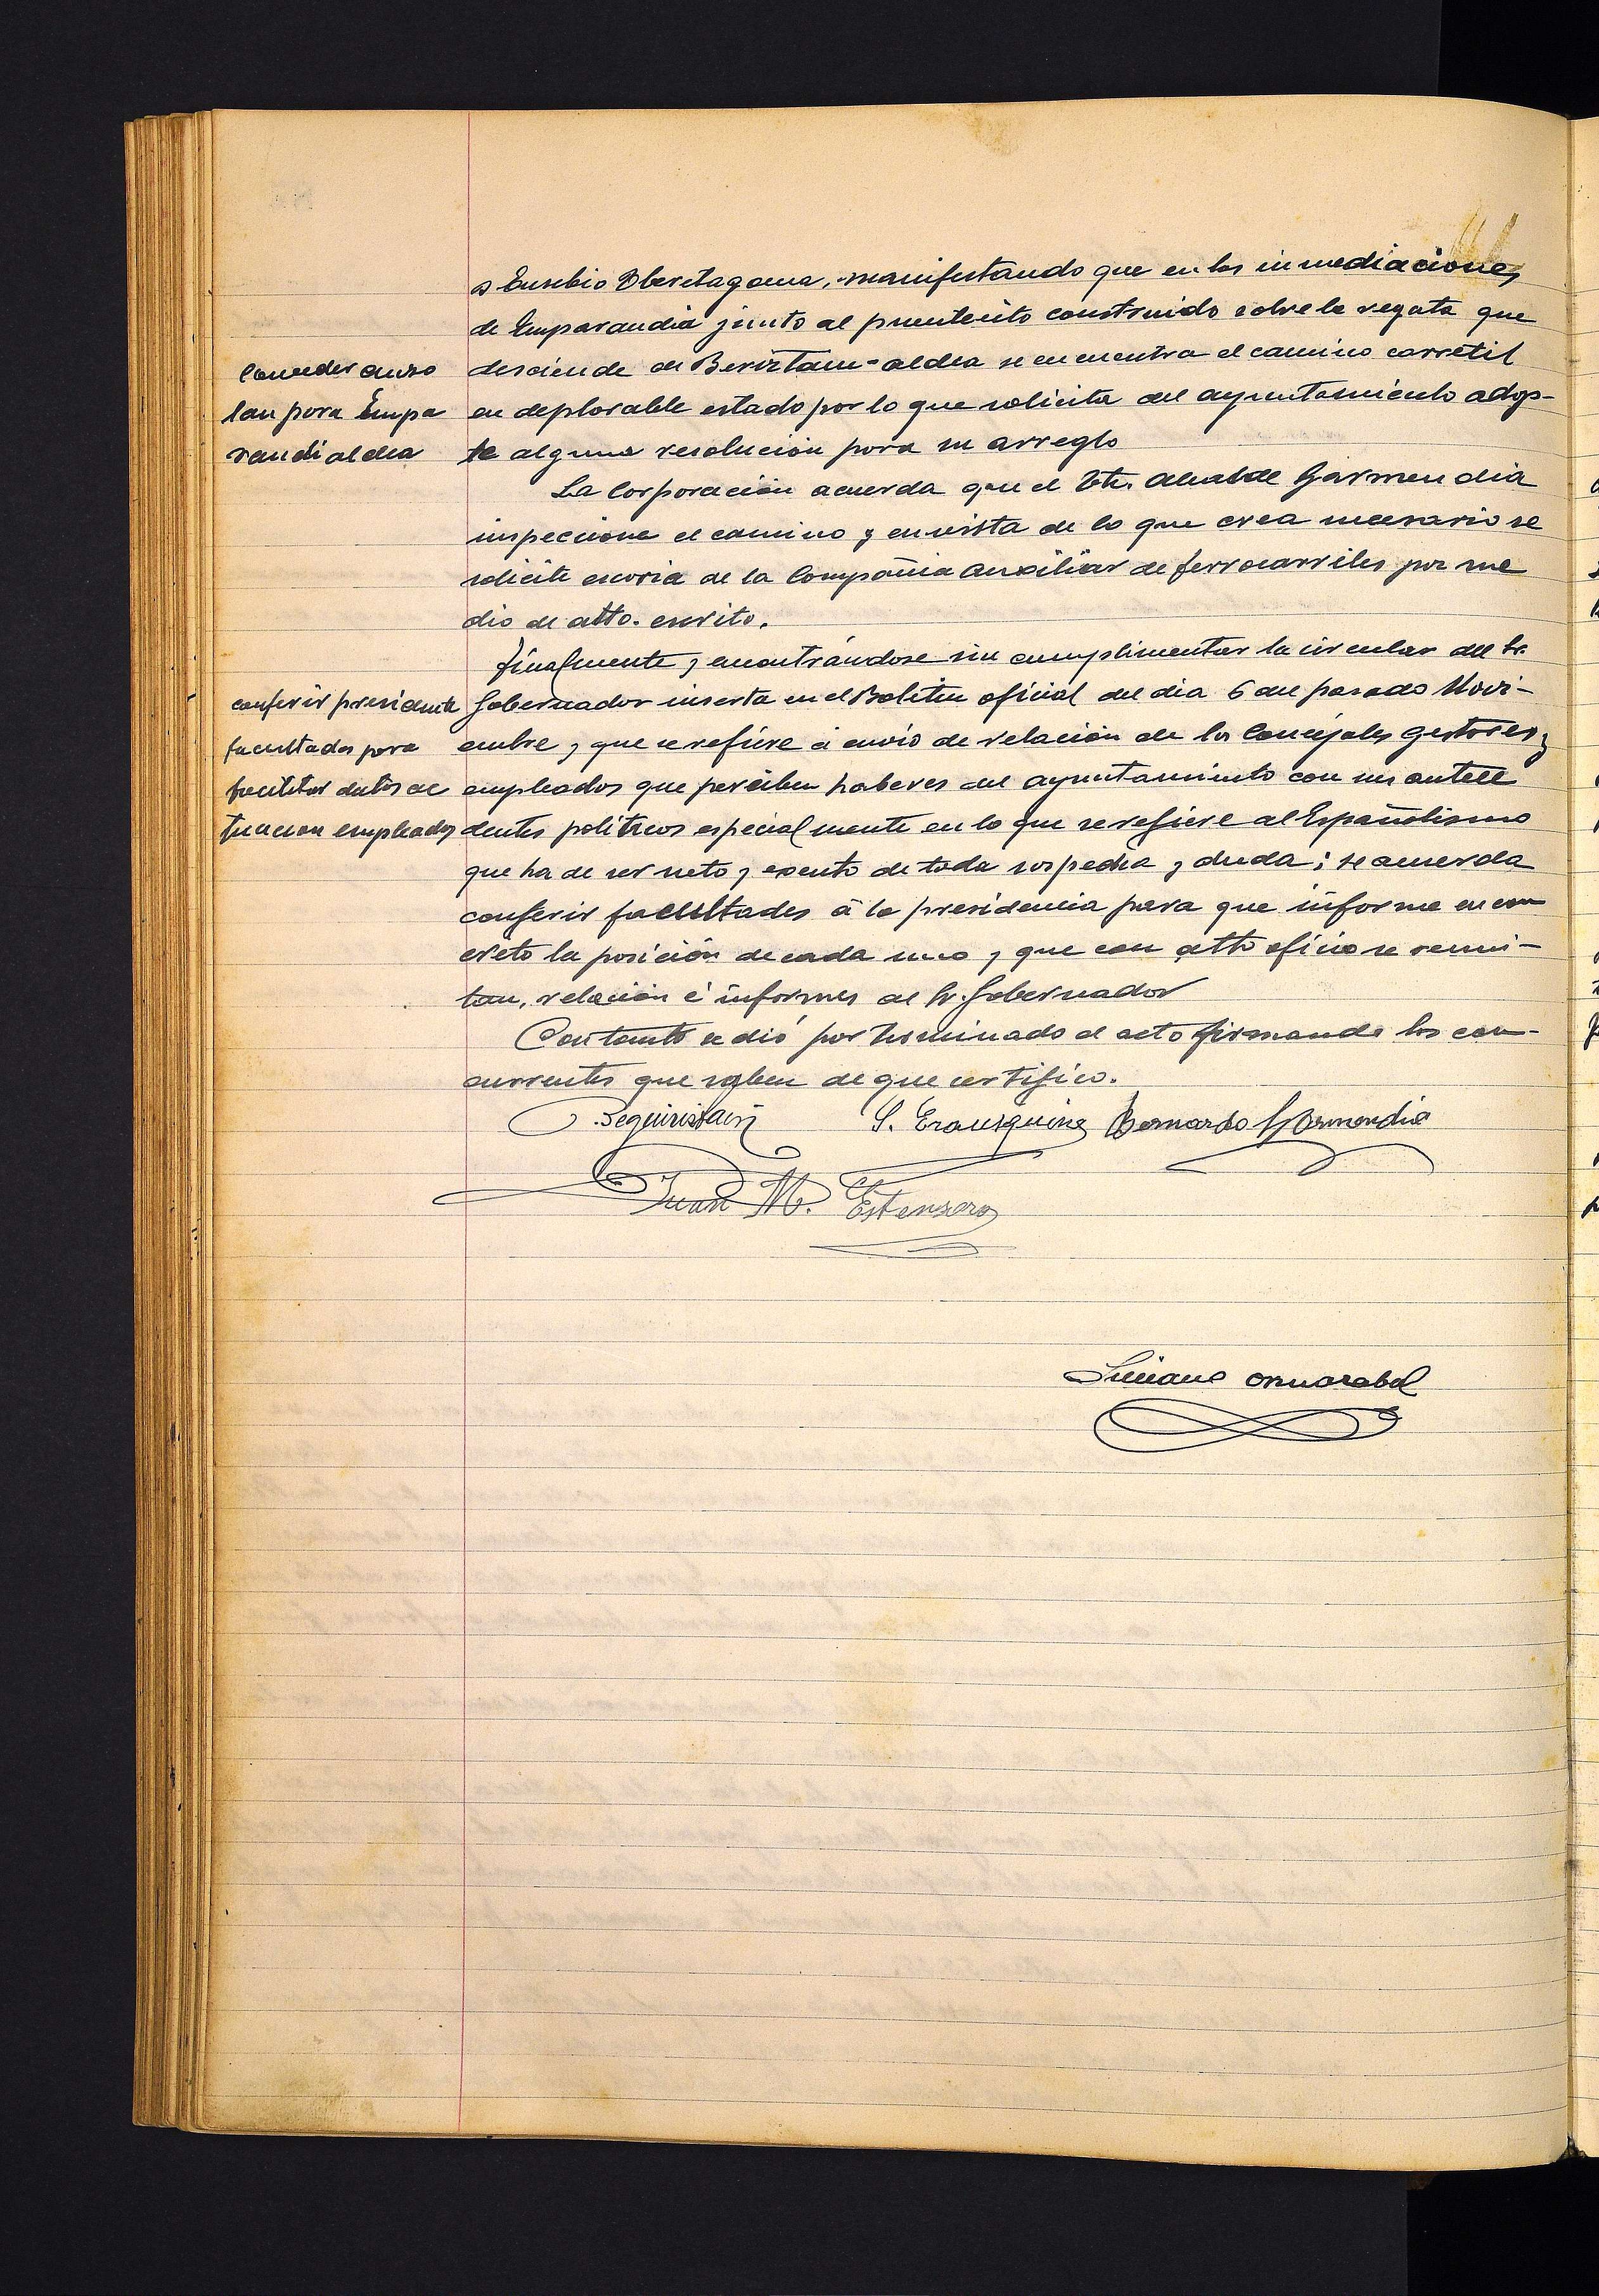 D Eusebio Oberetagoena, manifestando que en las inmediaciones
de Emparandia junto al puentecito construido sobre la regata que
desciende de Beriztain-aldea se encuentra el camino carretil
en deplorable estado por lo que solicita del ayuntamiento adop-
te alguna resolución para su arreglo
conceder
lan para Empa
randi aldea
La Corporación acuerda que el Tte. Alcalde Garmendia
inspeccione el camino y en vista de lo que crea necesario se
solicite escoria de la Compañia Auxiliar de ferrocarriles por me
dio de atto. escrito.
Finalmente y encontrándose sin cumplimentar la circular del Sr.
Gobernador inserta en el Boletin oficial del dia 6 del pasado Novi-
embre y que se refiere á envio de relación de los Concejales gestores y
empleados que perciben haberes del ayuntamiento con sus antece
dentes politicos especialmente en lo que se refiere al Españolismo
que ha de ser neto y exento de toda sospecha y duda; se acuerda
conferir facultades á la presidencia para que informe en con
creto la posición de cada uno y que con atto oficio se remi-
tan, relación é informes al Sr. Gobernador
conferir presidente
facultades para
facilitar datos ac
tuacion empleados
Con tanto se dió por terminado el acto firmando los con-
currentes que saben de que certifico.
Beguiristain S. Erausquin Bernardo Garmendia
Juan M. Estensoro
Luciano Ormazabal